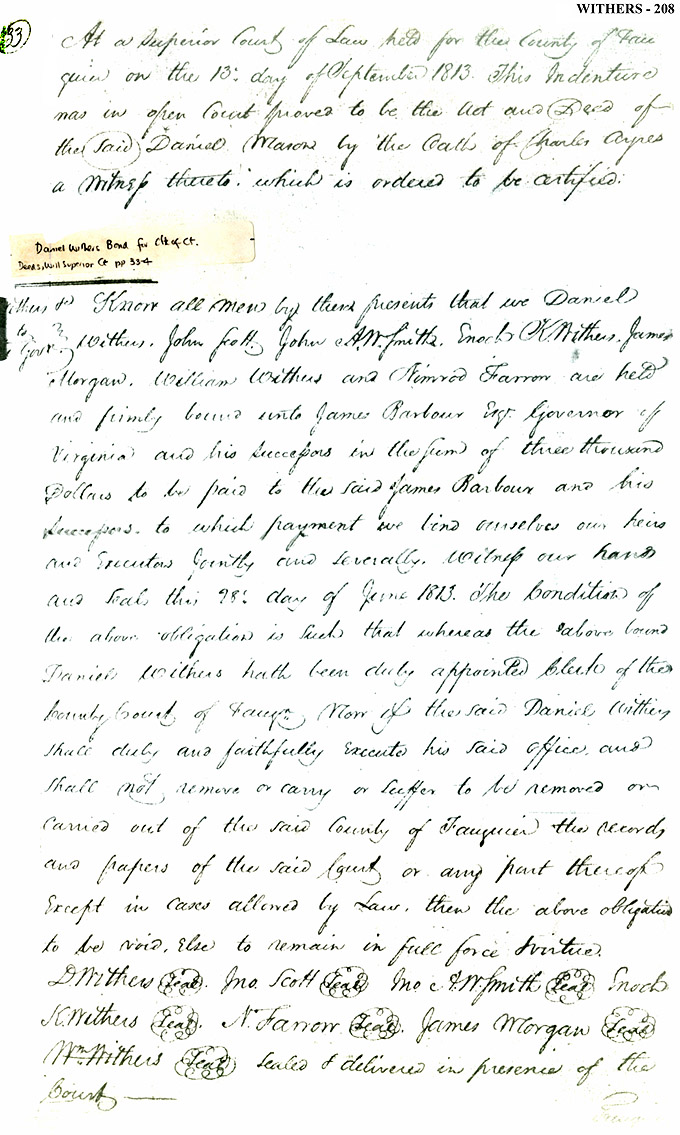 WITHERS - 208
33
At a Superior Court of Law held for the County of Fau
quier on the 13th day of September 1813. This Indenture
was in open Court proved to be the Act and Deed of
the said Daniel Mason by the Oath of Charles Ayres
a Witness thereto: which is ordered to be certified.
Daniel Withers Bond for Clk of Ct.
Deeds, Will Superior Ct pp 33-4
Withers &c
to
Govr.
Know all men by these presents that we Daniel
Withers, John Scott, John A.W. Smith, Enoch K. Withers, James
Morgan, William Withers and Nimrod Farrow are held
and firmly bound unto James Barbour Esqr. Governor of
Virginia and his Successors in the sum of three thousand
Dollars to be paid to the said James Barbour and his
Successors. to which payment we bind ourselves our heirs
and Executors Jointly and Severally. Witness our hands
and Seals this 28th day of June 1813. The Condition of
the above obligation is Such that whereas the above bound
Daniel Withers hath been duly appointed Clerk of the
County Court of Fauqr. Now if the said Daniel Withers
shall duly and faithfully Execute his said office and
shall not remove or carry or suffer to be removed or
carried out of the said County of Fauquier the records
and papers of the said Court or any part thereof
Except in cases allowed by Law. then the above obligation
to be void, Else to remain in full force & virtue.
D. Withers Seal. Jno. Scott Seal Jno A.W. Smith Seal Enoch
K. Withers Seal. N. Farrow Seal. James Morgan Seal
Wm. Withers Seal sealed & delivered in presence of the
Court